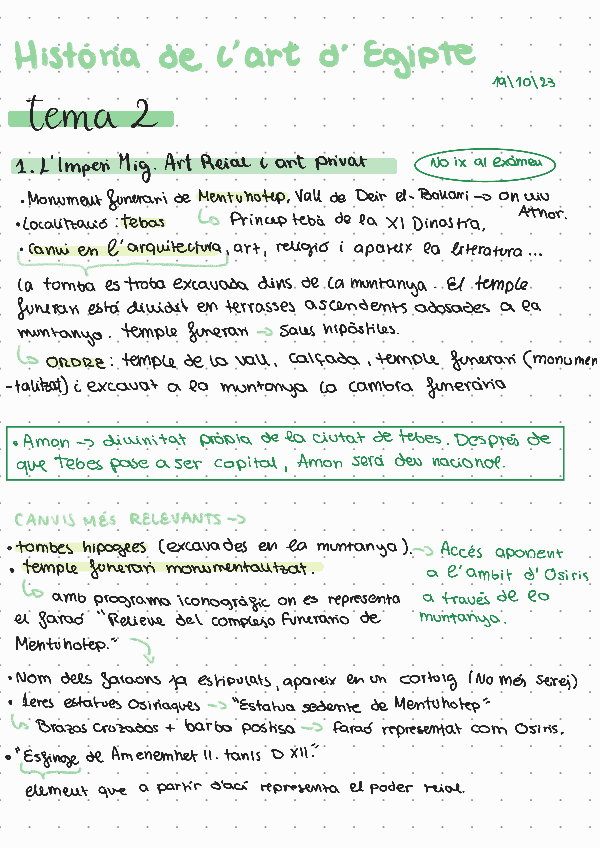 Història de l'art d'Egipte
19/10/23
tema 2
1. L'Imperi Mig. Art Reial i art privat
No ix al exàmeu
• Monument funerari de Mentuhotep, Vall de Deir el-Bahari → on viu Athor.
• Localització: Tebas ↳ Príncep tebà de la XI Dinastia.
• Canvi en l'arquitectura, art, religió i apareix la literatura...
la tomba es troba excavada dins de la muntanya. El temple
funerari està dividit en terrasses ascendents adosades a la
muntanya. temple funerari → sales hipòstiles.
↳ ORDRE: temple de la vall, calçada, temple funerari (monumen
-talitzat) i excavat a la muntanya la cambra funerària
• Amon → divinitat pròpia de la ciutat de tebes. Després de
que Tebes pase a ser capital, Amon serà deu nacional.
CANVIS MÉS RELEVANTS →
• tombes hipogees (excavades en la muntanya). → Accés aponent
• temple funerari monumentalitzat. a l'àmbit d'Osiris
↳ amb programa iconogràfic on es representa a través de la
el faraó "Relieve del complejo funerario de muntanya.
Mentuhotep."
• Nom dels faraons ja estipulats, apareix en un cartoig (No més serej)
• 1eres estatues Osiriaques → "Estatua sedente de Mentuhotep"
↳ Brazos cruzados + barba postisa → faraó representat com Osiris.
• "Esfinge de Amenemhet II. tanis D XII."
element que a partir d'ací representa el poder reial.